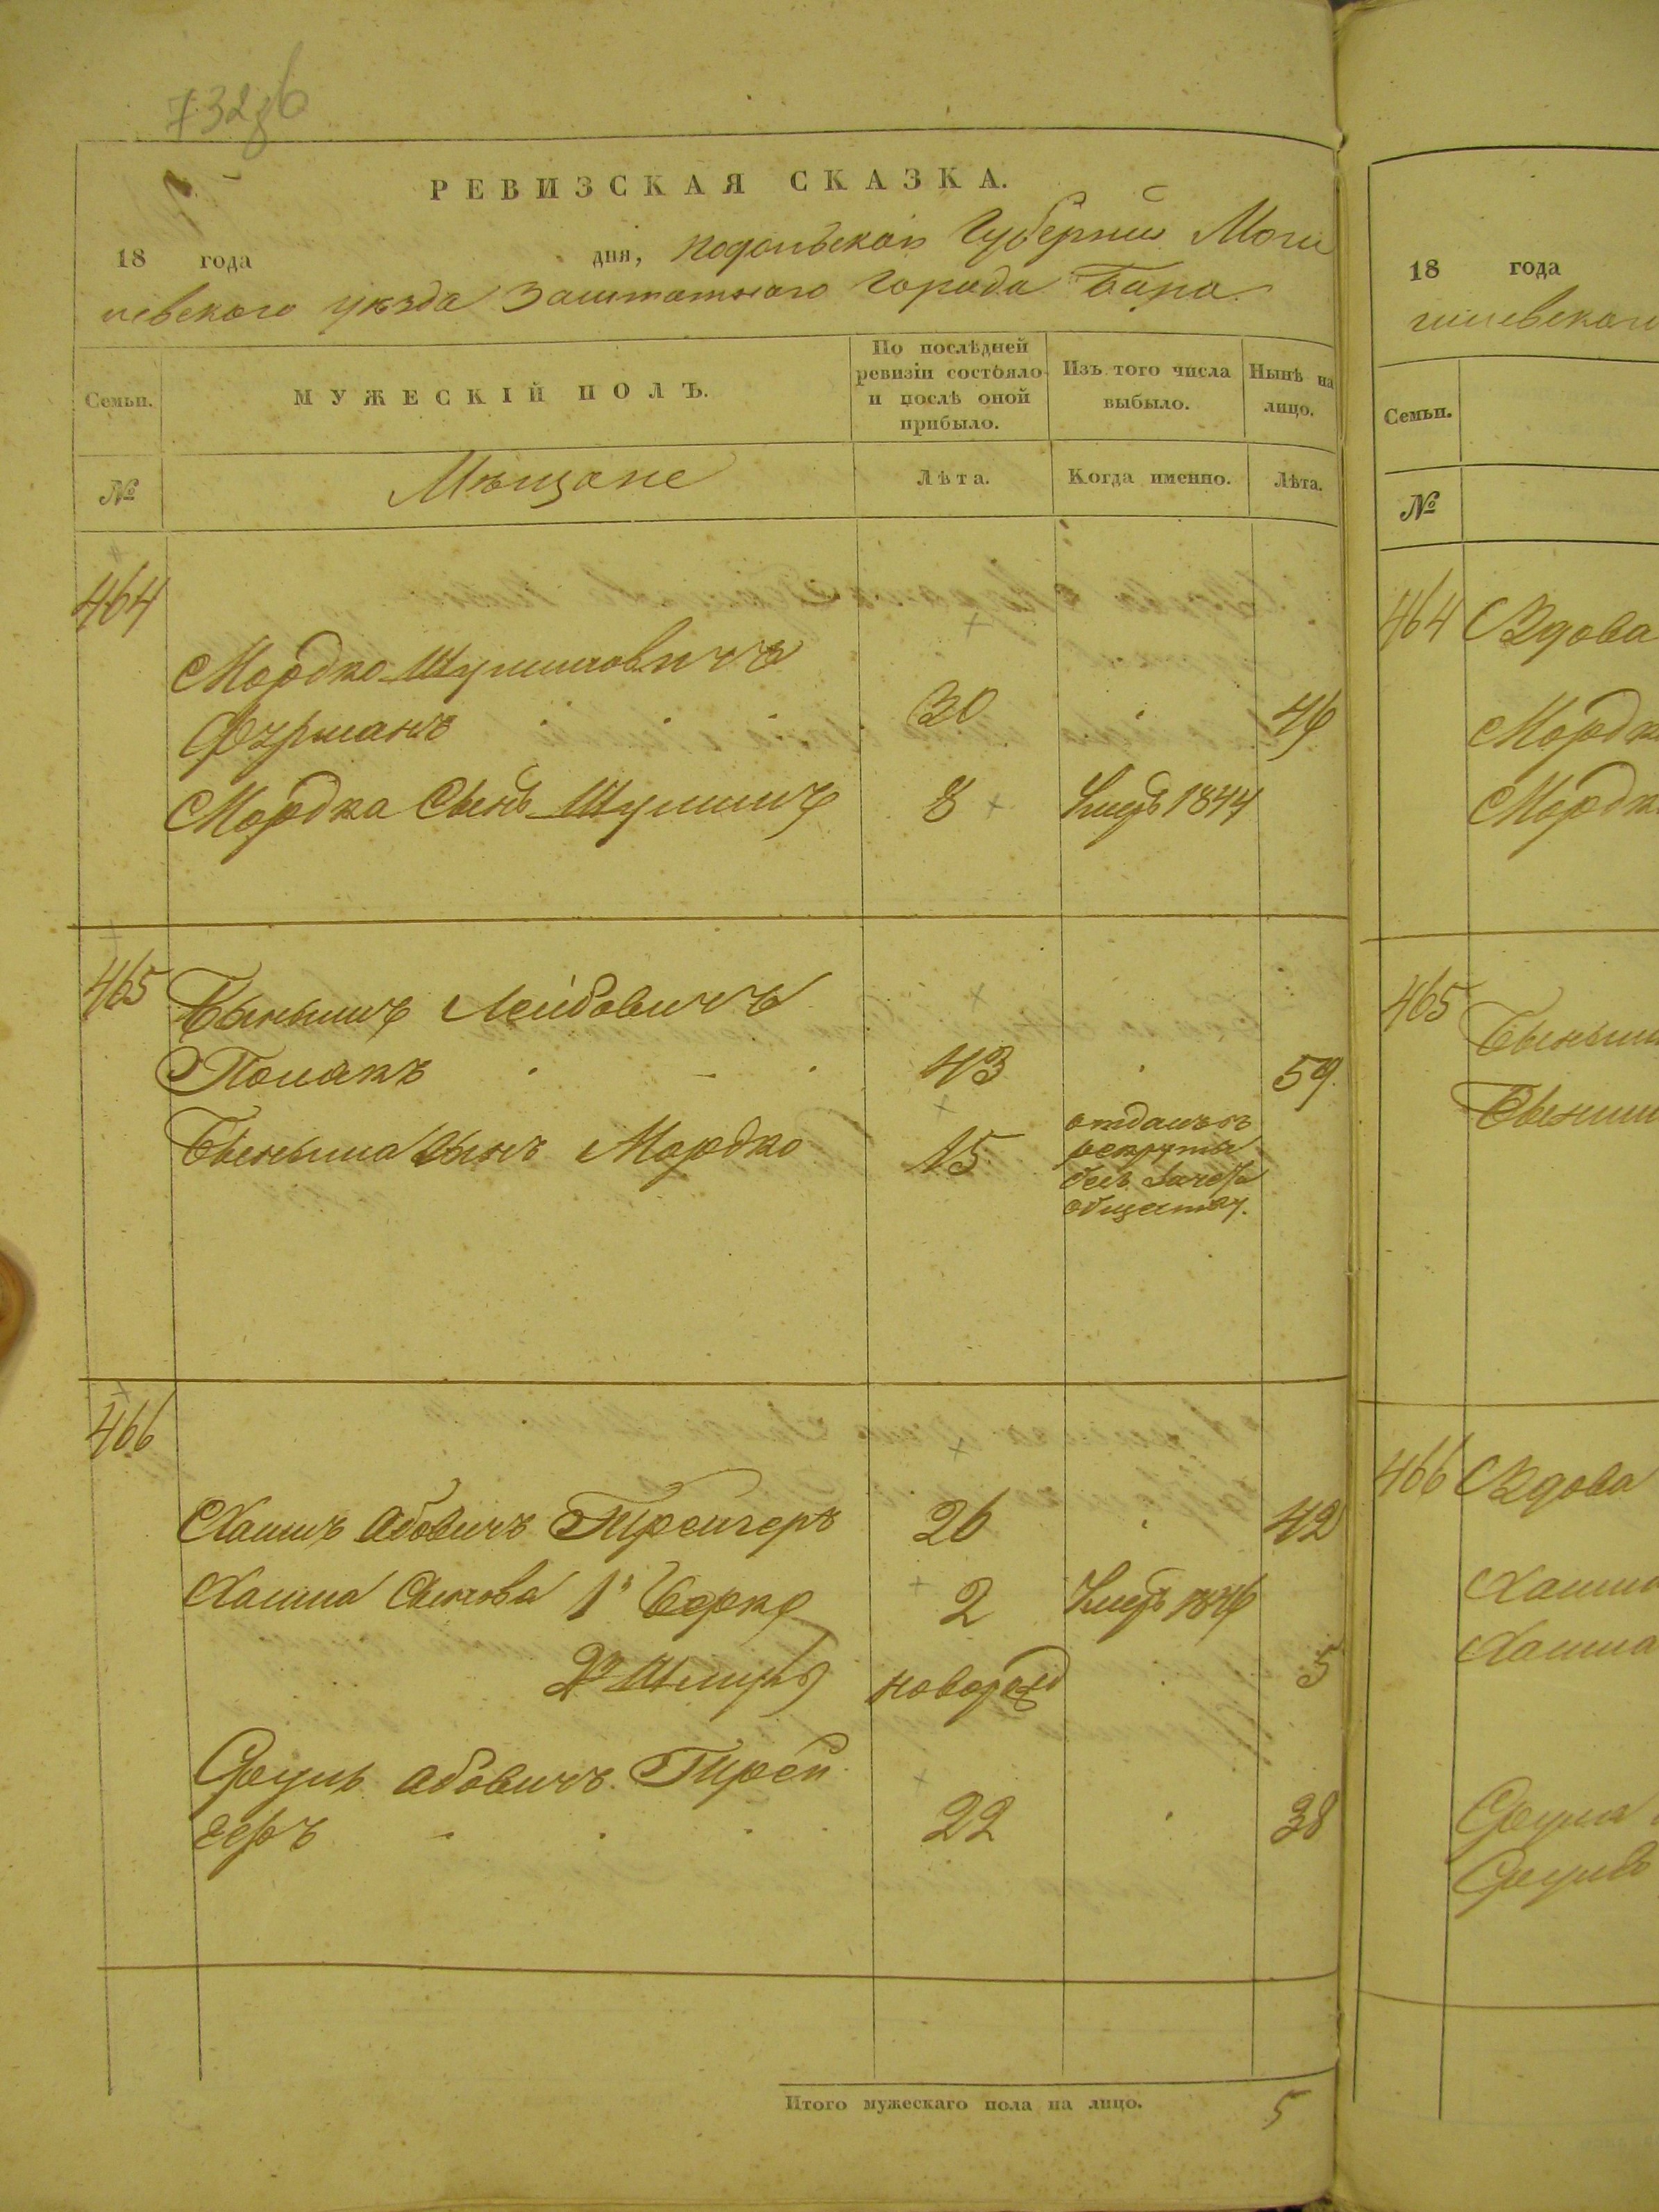 732об
РЕВИЗСКАЯ СКАЗКА.
18 года дня, Подольской Губерніи Моги
левского уѣзда Заштатного Города Бара
Семьи.
МУЖЕСКІЙ ПОЛЪ.
По послѣдней ревизіи состояло и послѣ оной прибыло.
Изъ того числа выбыло.
Нынѣ на лицо.
№
Мѣщане
Лѣта.
Когда именно.
Лѣта.
464
Мордко Шулимовичъ
Фурманъ 30 46
Мордка Сынъ Шулимъ 8 Умеръ 1844
465 Беньшъ Лейбовичъ
Полякъ 43 59
Беньша Сынъ Мордко 15 отданъ въ рекруты безъ зачета обществу.
466
Хаимъ Абовичъ Трейгеръ 26 42
Хаима Сыновья 1й Берко 2 Умеръ 1846
2й Шмуль новорожд 5
Сруль Абовичъ Трей
геръ 22 38
Итого мужескаго пола на лицо. 5
18 года
гилевского
Семьи.
№
464 Вдова
Мордк
Мордк
465
466 Вдова
Хаима
Хаима